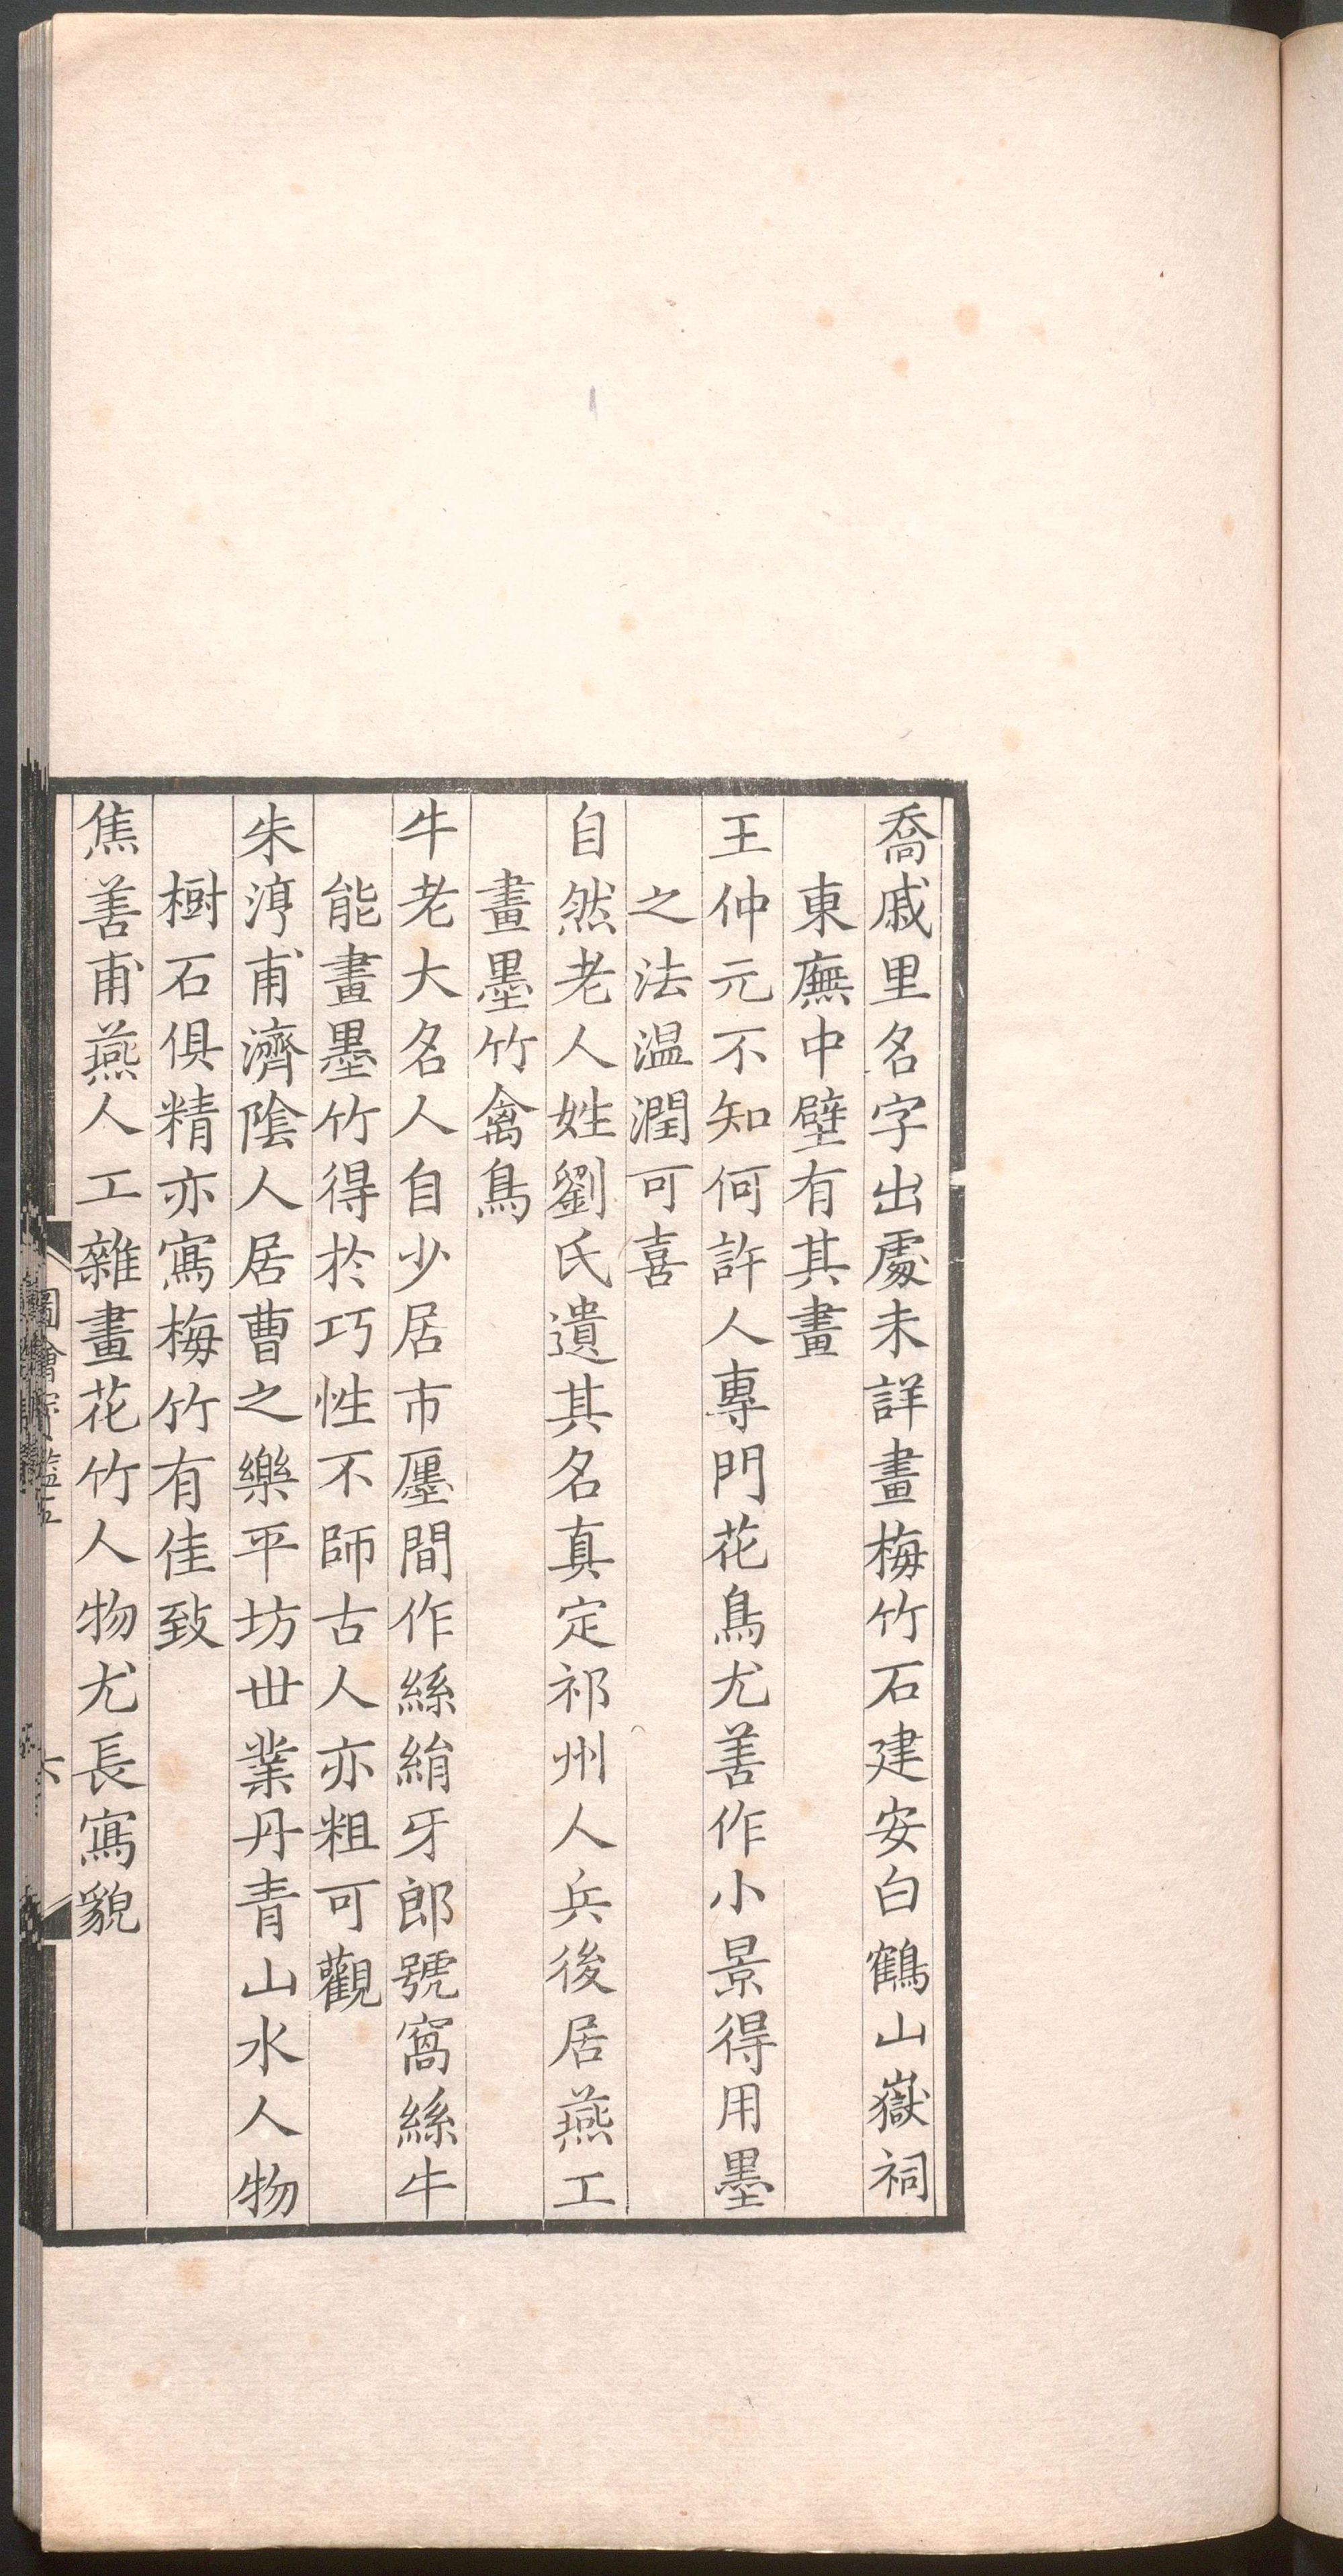 喬戚里名字出處未詳畫梅竹石建安白鶴山嶽祠
東廡中壁有其畫
王仲元不知何許人專門花鳥尤善作小景得用墨
之法温潤可喜
自然老人姓劉氏遺其名真定祁州人兵後居燕工
畫墨竹禽鳥
牛老大名人自少居市㕓間作絲絹牙郎號窩絲牛
能畫墨竹得於巧性不師古人亦粗可觀
朱渟甫濟陰人居曹之樂平坊丗業丹青山水人物
樹石俱精亦寫梅竹有佳致
焦善甫燕人工雜畫花竹人物尤長寫貌
圖繪寶鑑五
六